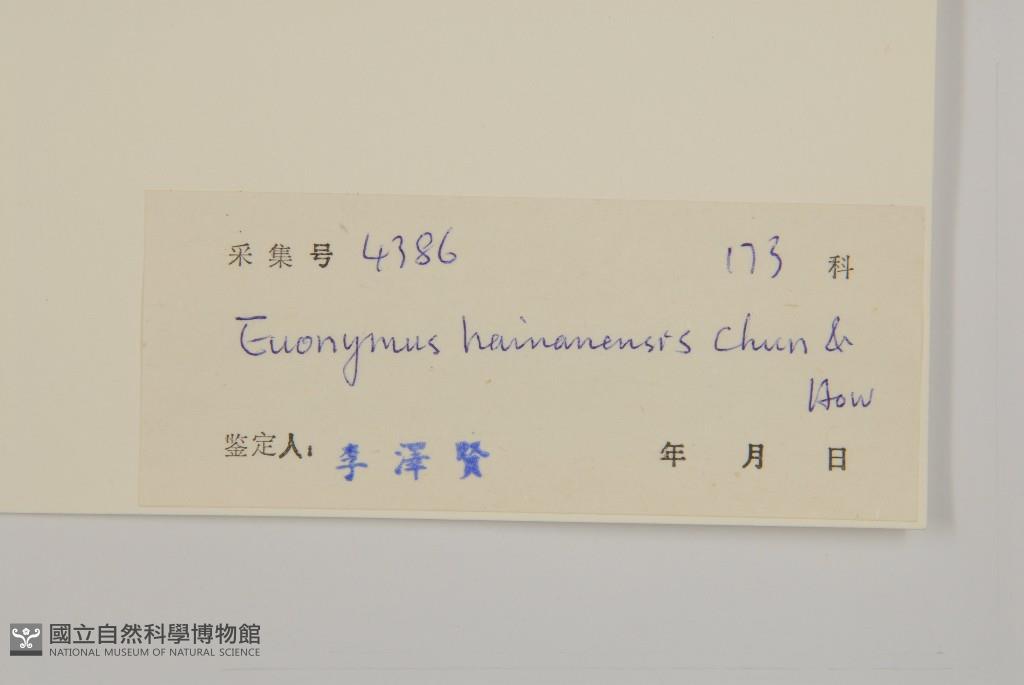 采集号 4386 173 科
Euonymus hainanensis Chun &
How
鉴定人: 李澤賢 年 月 日
國立自然科學博物館
NATIONAL MUSEUM OF NATURAL SCIENCE